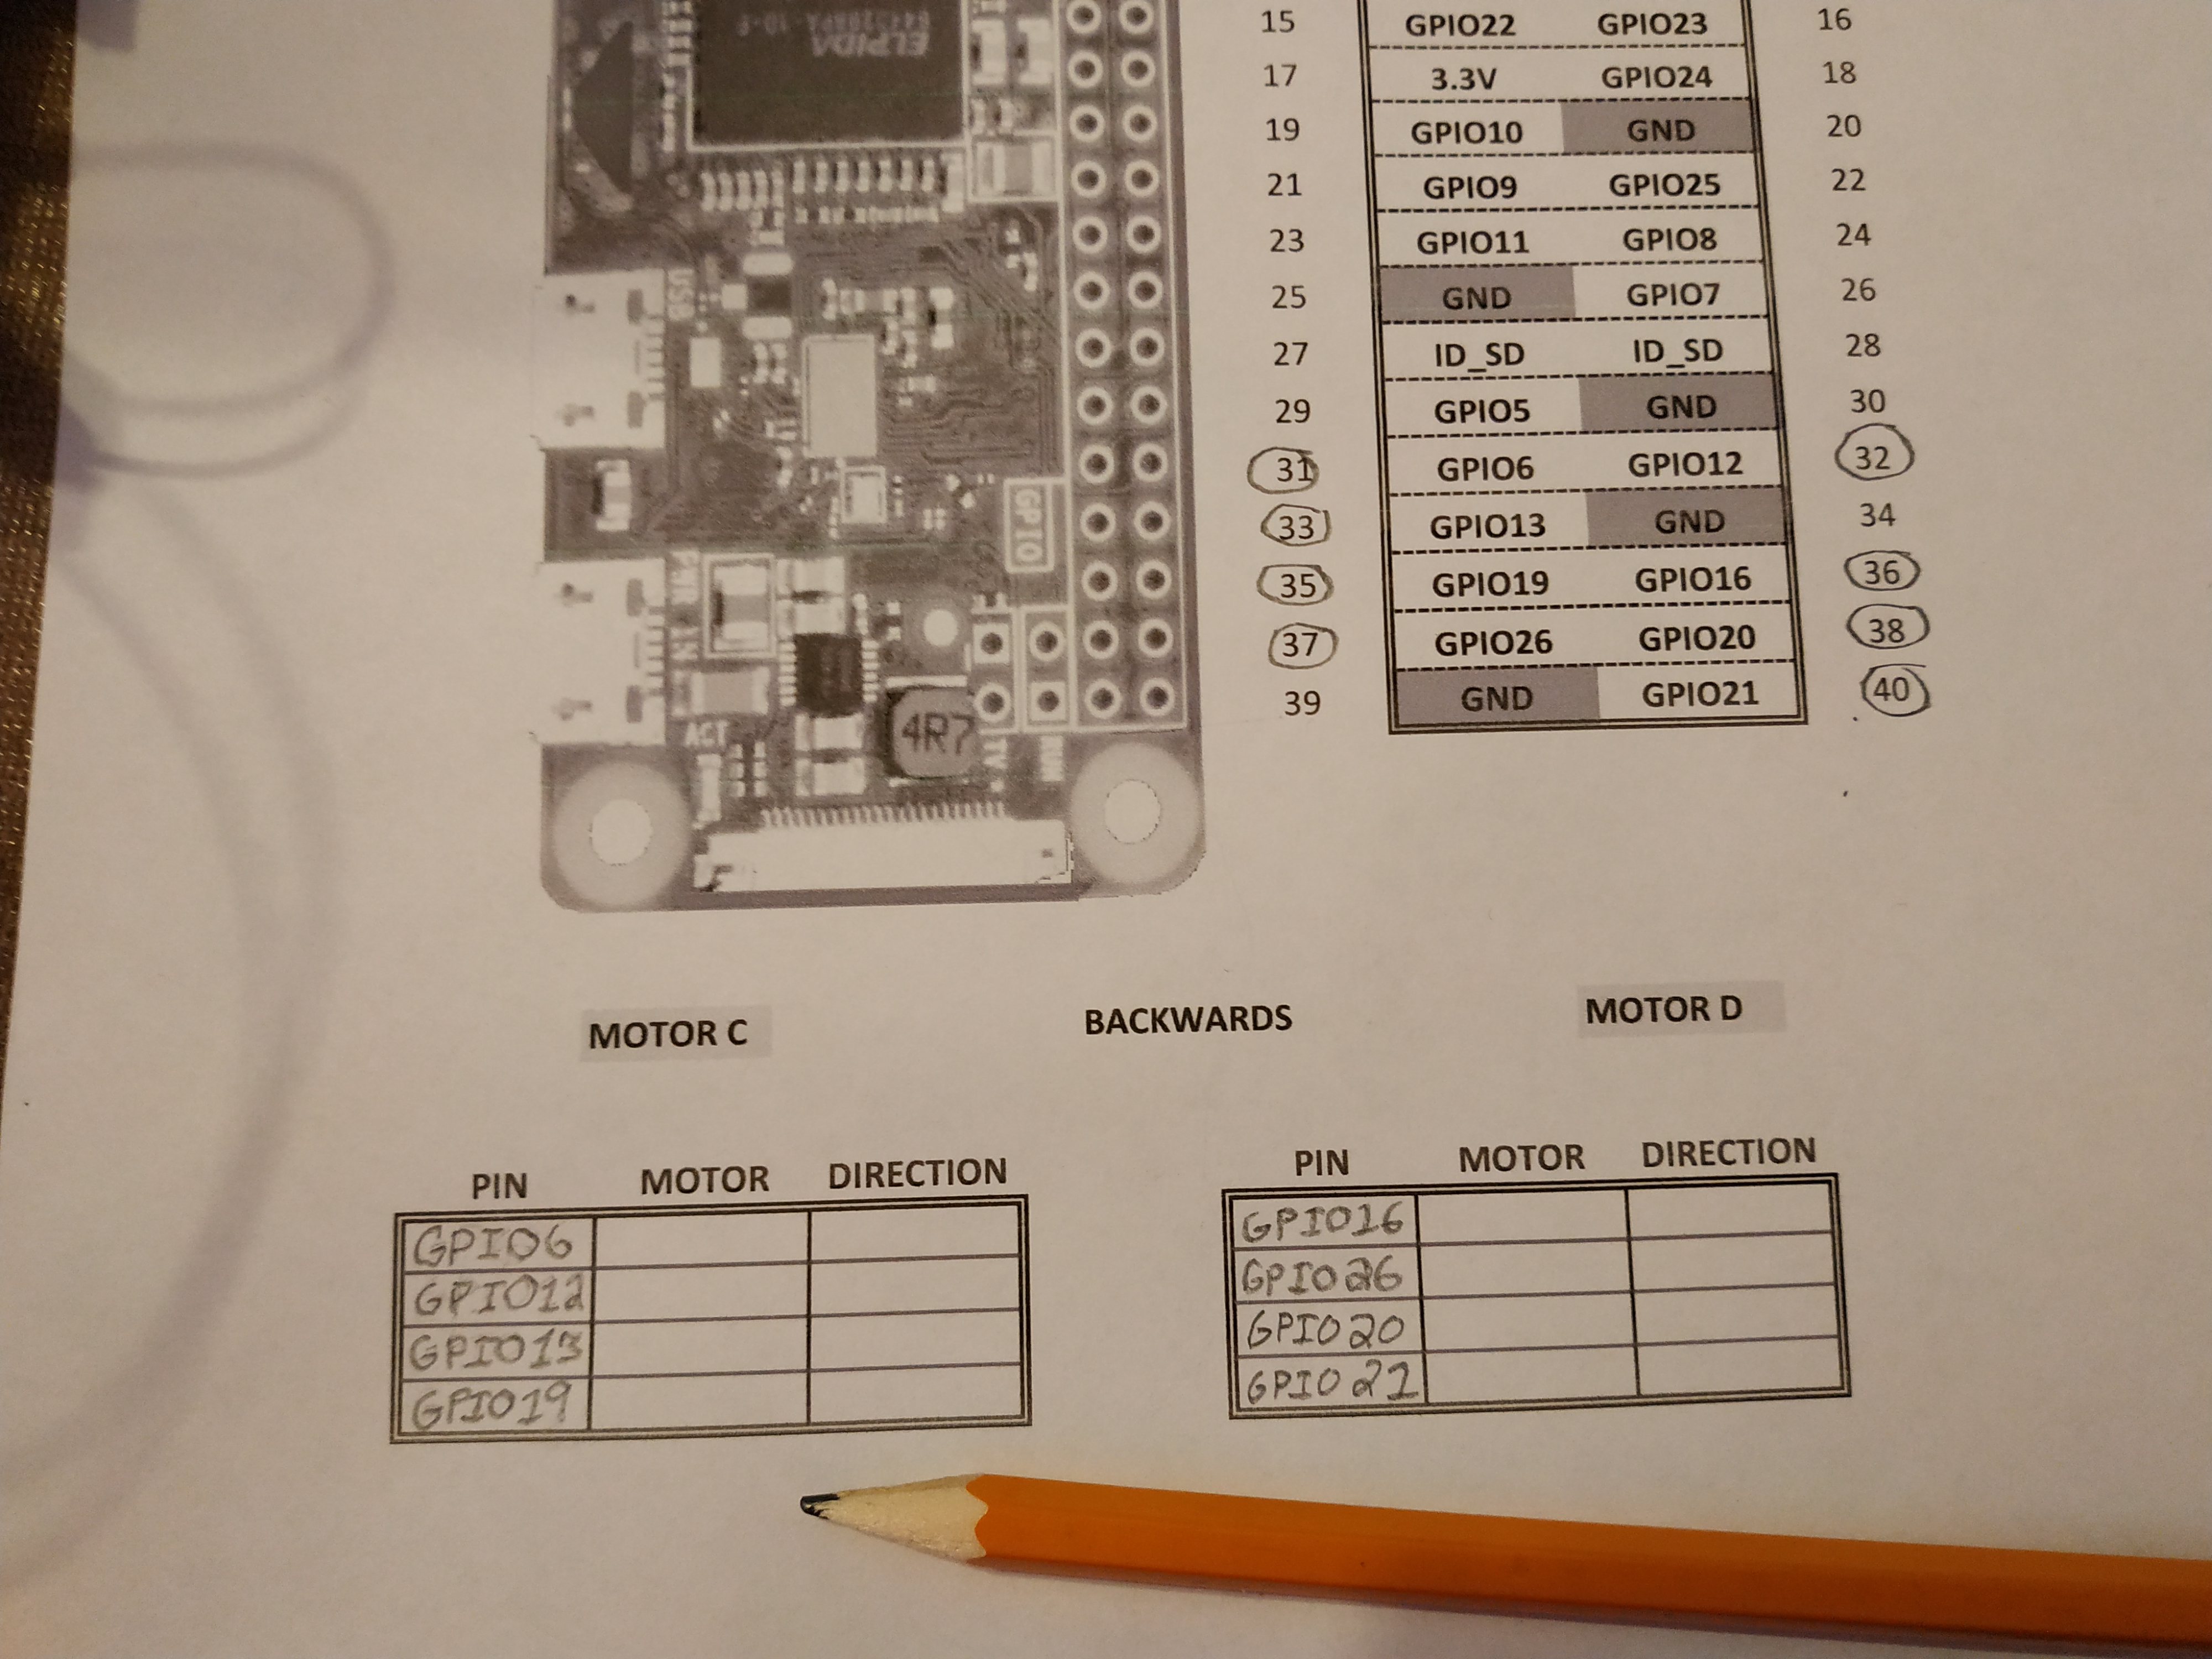 ELPIDA
15 GPIO22 GPIO23 16
17 3.3V GPIO24 18
19 GPIO10 GND 20
21 GPIO9 GPIO25 22
23 GPIO11 GPIO8 24
25 GND GPIO7 26
27 ID_SD ID_SD 28
29 GPIO5 GND 30
31 GPIO6 GPIO12 32
33 GPIO13 GND 34
35 GPIO19 GPIO16 36
37 GPIO26 GPIO20 38
39 GND GPIO21 40
USB
GPIO
PWR IN
4R7
ACT
TV
RUN
MOTOR C BACKWARDS MOTOR D
PIN MOTOR DIRECTION
GPIO6
GPIO12
GPIO13
GPIO19
PIN MOTOR DIRECTION
GPIO16
GPIO26
GPIO20
GPIO21